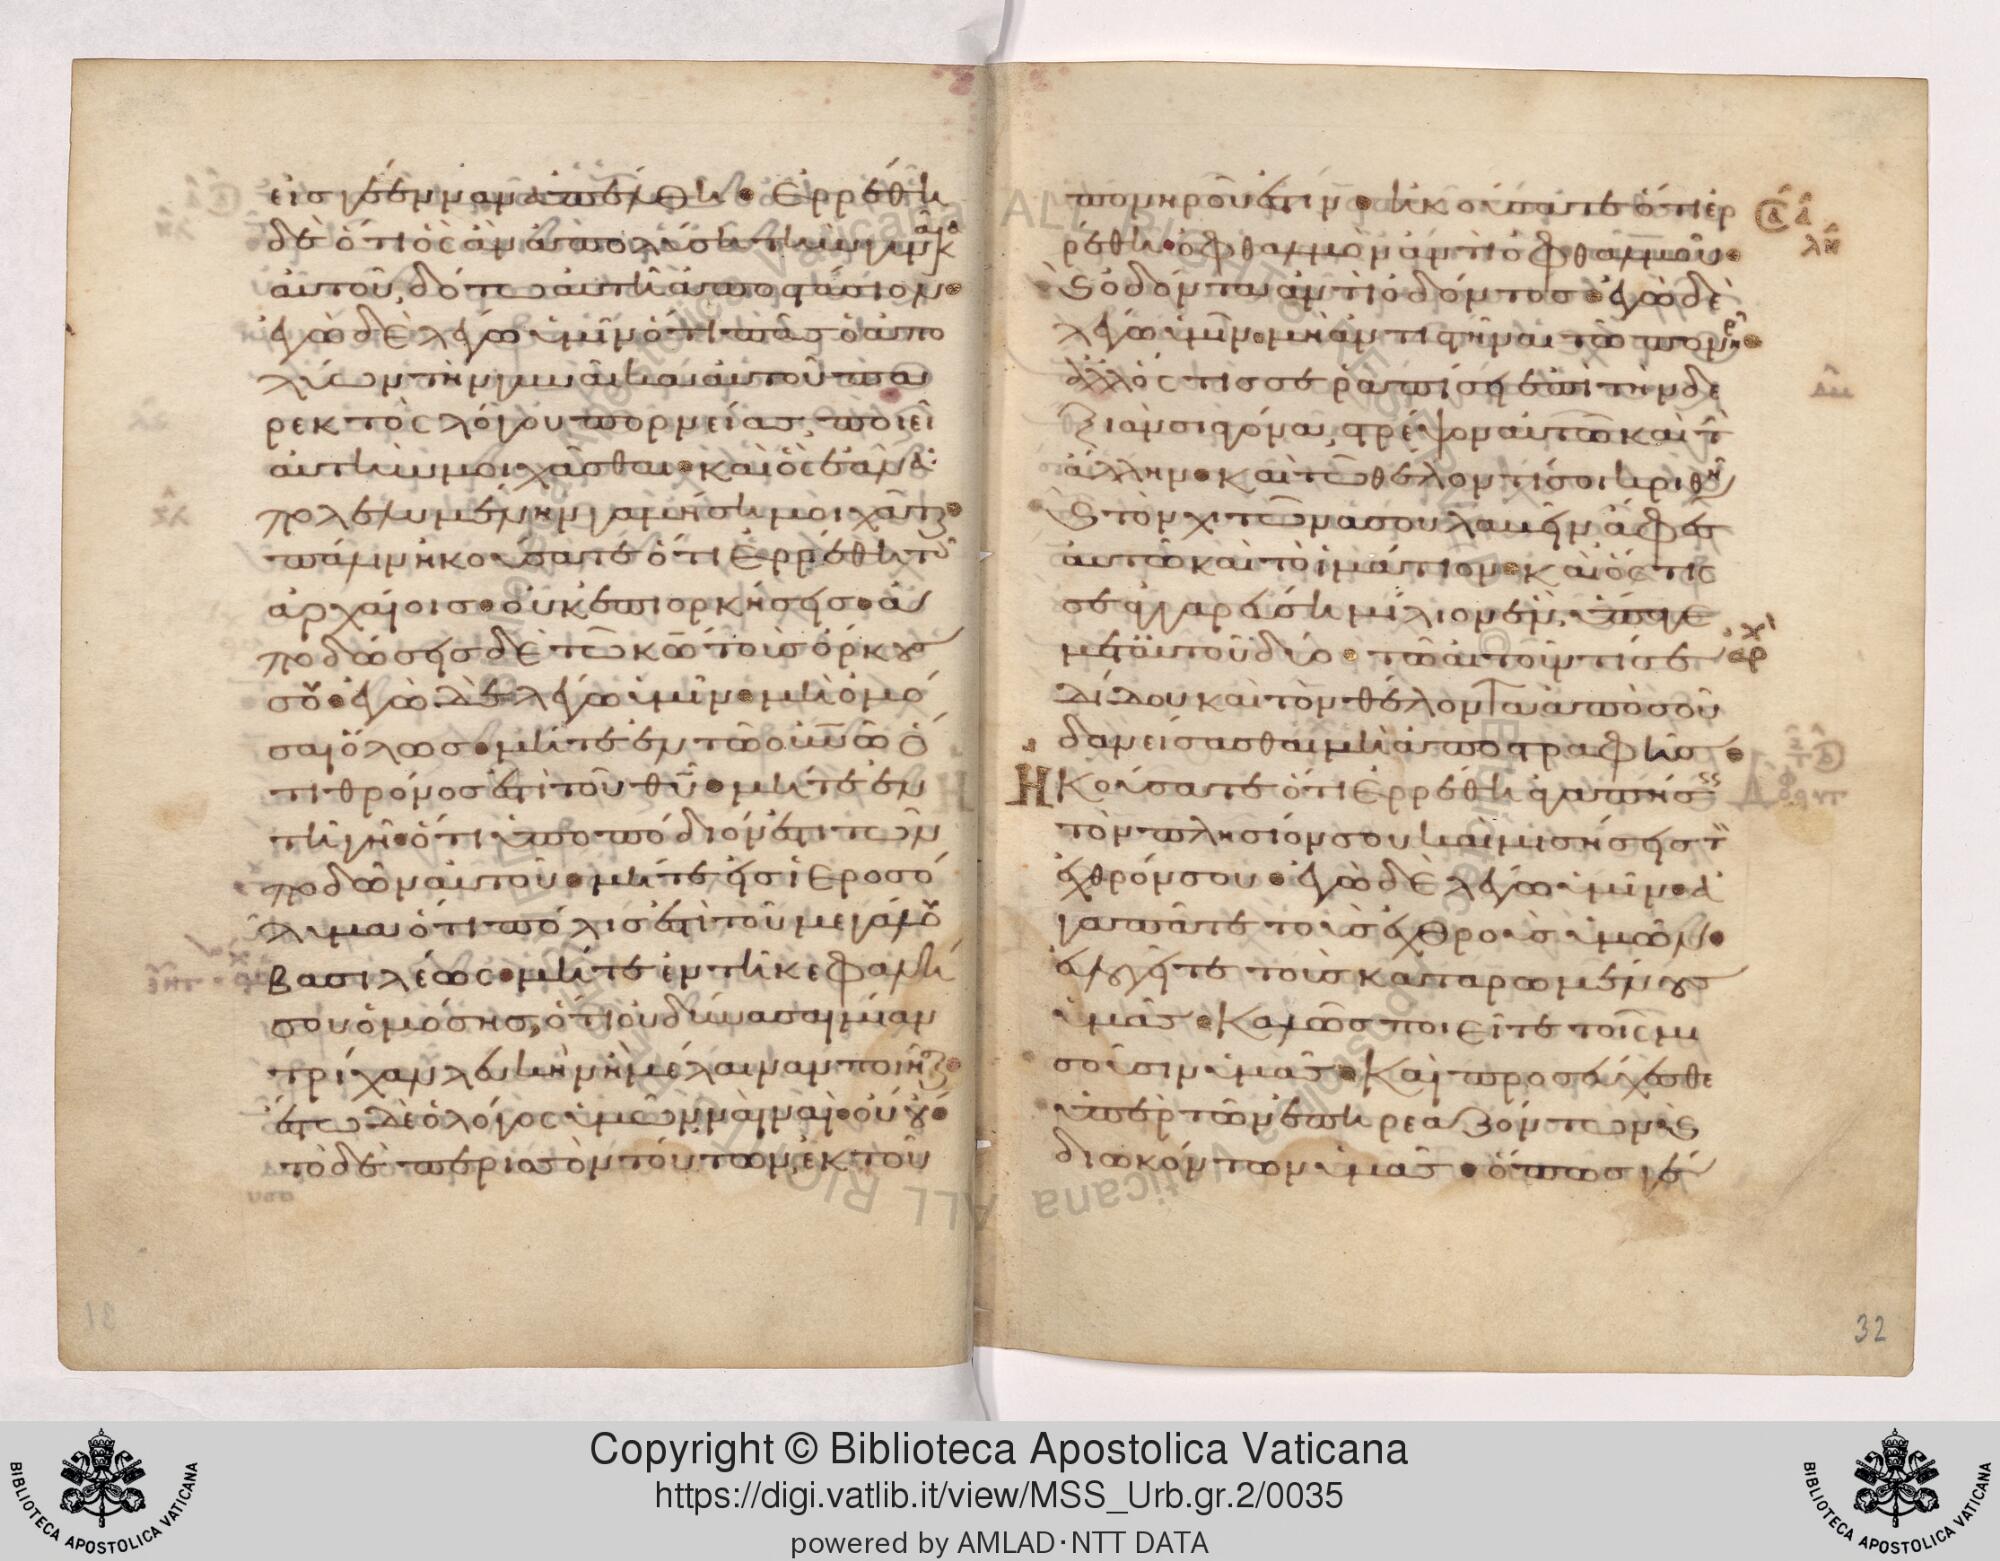 εἰς γέενναν ἀπέλθη · Ἐρρέθη
δὲ ὅτι ὃς ἂν ἀπολύση τὴν γυναῖκα
αὐτοῦ, δότω αὐτῆ ἀποστάσιον ·
ἐγὼ δὲ λέγω ὑμῖν ὅτι πᾶς ὁ ἀπο
λύων τὴν γυναῖκα αὐτοῦ πα
ρεκτὸς λόγου πορνείας, ποιεῖ
αὐτὴν μοιχᾶσθαι · καὶ ὃς ἐὰν ἀ
πολελυμένην γαμήση μοιχᾶται ·
πάλιν ἠκούσατε ὅτι Ἐρρέθη τοῖς
ἀρχαίοις · οὐκ ἐπιορκήσης · ἀ
ποδώσης δὲ τῶ κῶ τοὺς ὅρκους
σου · ἐγὼ δὲ λέγω ὑμῖν · μὴ ὀμό
σαι ὅλως · μήτε ἐν τῶ οὐνῶ ὅ
τι θρόνος ἐστὶ τοῦ θῦ · μήτε ἐν
τῆ γῆ · ὅτι ὑποπόδιόν ἐστι τῶν
ποδῶν αὐτοῦ · μήτε εἰς ἱεροσό
λυμα ὅτι πόλις ἐστὶ τοῦ μεγάλου
βασιλέως · μήτε ἐν τῆ κεφαλῆ
σου ὀμόσης, ὅτι οὐ δύνασαι μίαν
τρίχα λευκὴν ἢ μέλαιναν ποιῆσαι ·
ἔστω δὲ ὁ λόγος ὑμῶν ναὶ ναὶ · οὒ οὔ ·
τὸ δὲ περισσὸν τούτων, ἐκ τοῦ
πονηροῦ ἐστιν · ἠκούσατε ὅτι ἐρ
ρέθη · ὀφθαλμὸν ἀντὶ ὀφθαλμοῦ ·
καὶ ὀδόντα ἀντὶ ὀδόντος · ἐγὼ δὲ
λέγω ὑμῖν · μὴ ἀντιστῆναι τῶ πονηρῶ ·
ἀλλ' ὅστις σε ῥαπίση ἐπὶ τὴν δε
ξιὰν σιαγόνα, στρέψον αὐτῶ καὶ τὴν
ἄλλην · καὶ τῶ θέλοντί σοι κριθῆναι
καὶ τὸν χιτῶνα σου λαβεῖν ἄφες
αὐτῶ καὶ τὸ ἱμάτιον · καὶ ὅστις
σε ἀγγαρεύση μίλιον ἓν, ὕπαγε
μετ' αὐτοῦ δύο · τῶ αἰτοῦντί σε
δίδου καὶ τὸν θέλοντα ἀπὸ σοῦ
δανείσασθαι μὴ ἀποστραφῆς ·
Ἠκούσατε ὅτι Ἐρρέθη ἀγαπήσεις
τὸν πλησίον σου καὶ μισήσης τὸν
ἐχθρόν σου · ἐγὼ δὲ λέγω ὑμῖν · ἀ
γαπᾶτε τοὺς ἐχθροὺς ὑμῶν ·
εὐλογεῖτε τοὺς καταρωμένους
ὑμᾶς · Καλῶς ποιεῖτε τοῖς μι
σοῦσιν ὑμᾶς · Καὶ προσεύχεσθε
ὑπὲρ τῶν ἐπηρεαζόντων καὶ
διωκόντων ὑμᾶς · ὅπως γέ
32
Copyright © Biblioteca Apostolica Vaticana
https://digi.vatlib.it/view/MSS_Urb.gr.2/0035
powered by AMLAD·NTT DATA
BIBLIOTECA APOSTOLICA VATICANA
BIBLIOTECA APOSTOLICA VATICANA